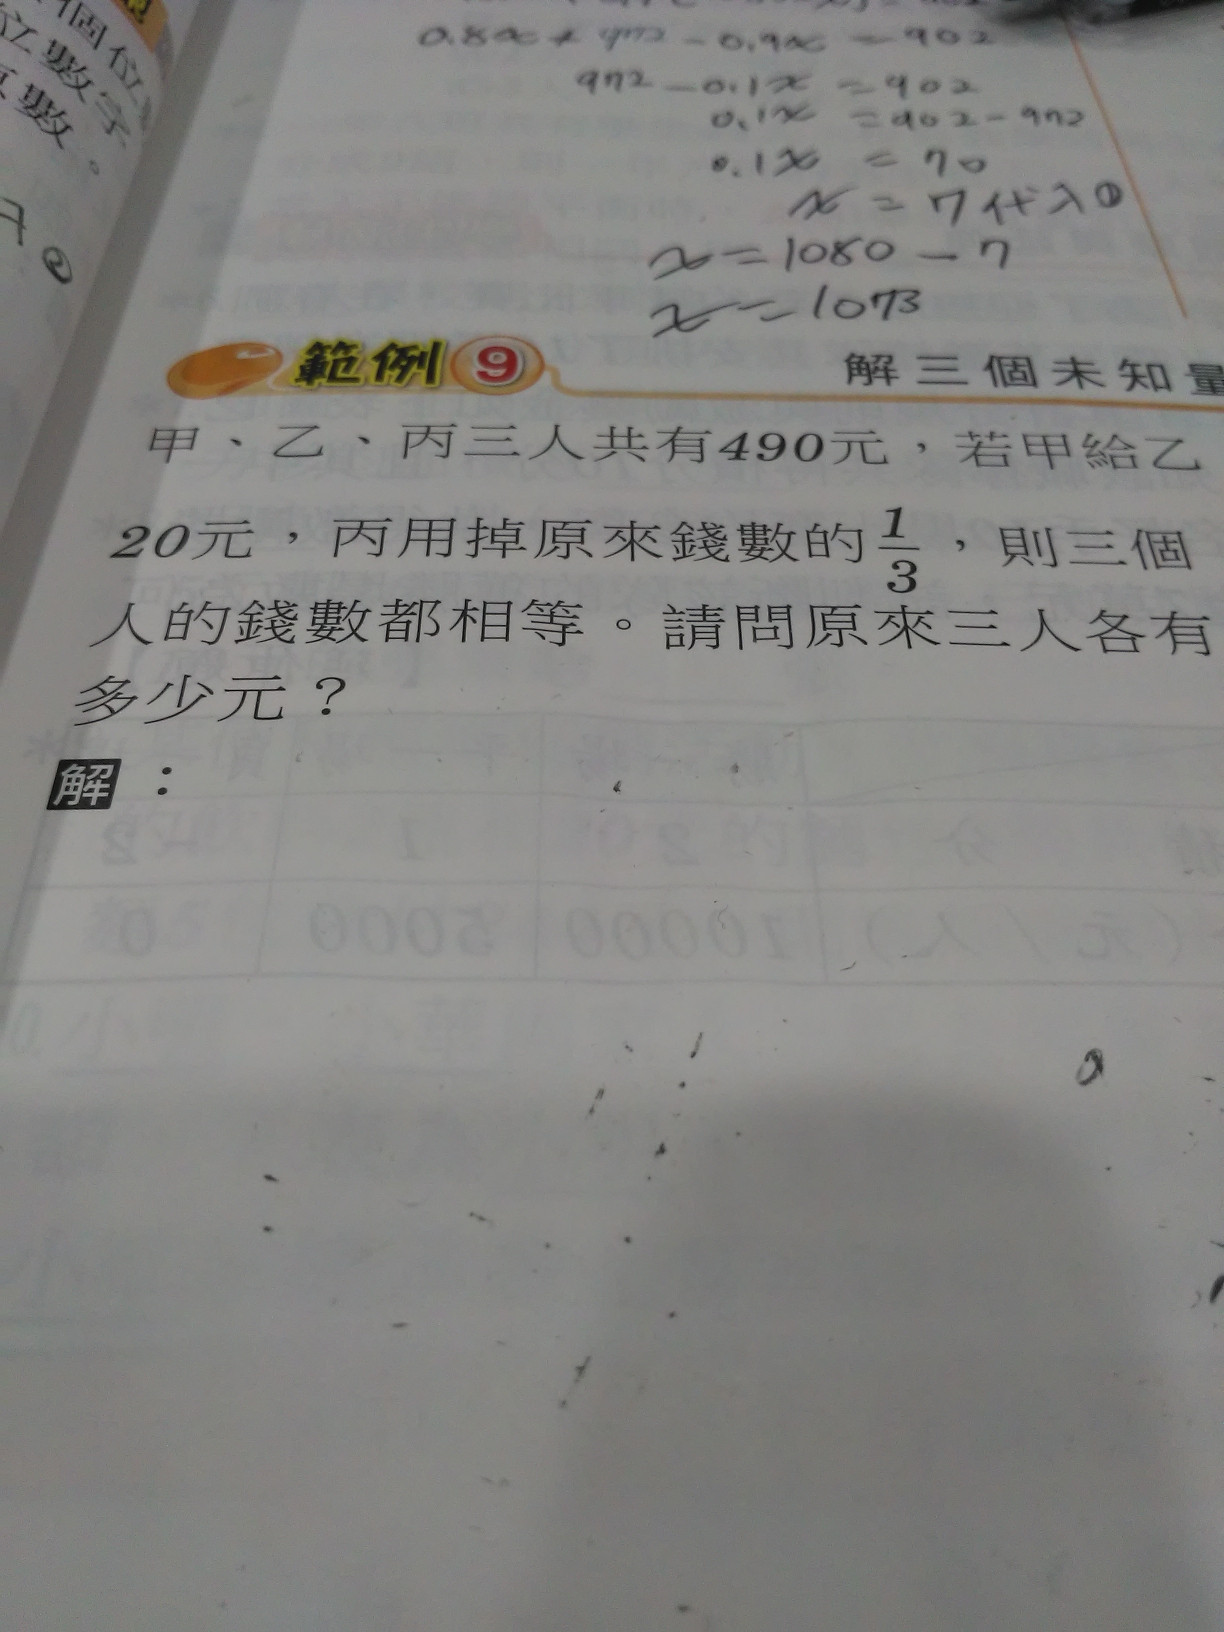 個位
位數字
數。
②
0.8x + 972 - 0.9x = 902
972 - 0.1x = 902
0.1x = 902 - 972
0.1x = 70
x = 7 代入①
x = 1080 - 7
x = 1073
範例 9
解三個未知量
甲、乙、丙三人共有490元，若甲給乙
20元，丙用掉原來錢數的1/3，則三個
人的錢數都相等。請問原來三人各有
多少元？
解：